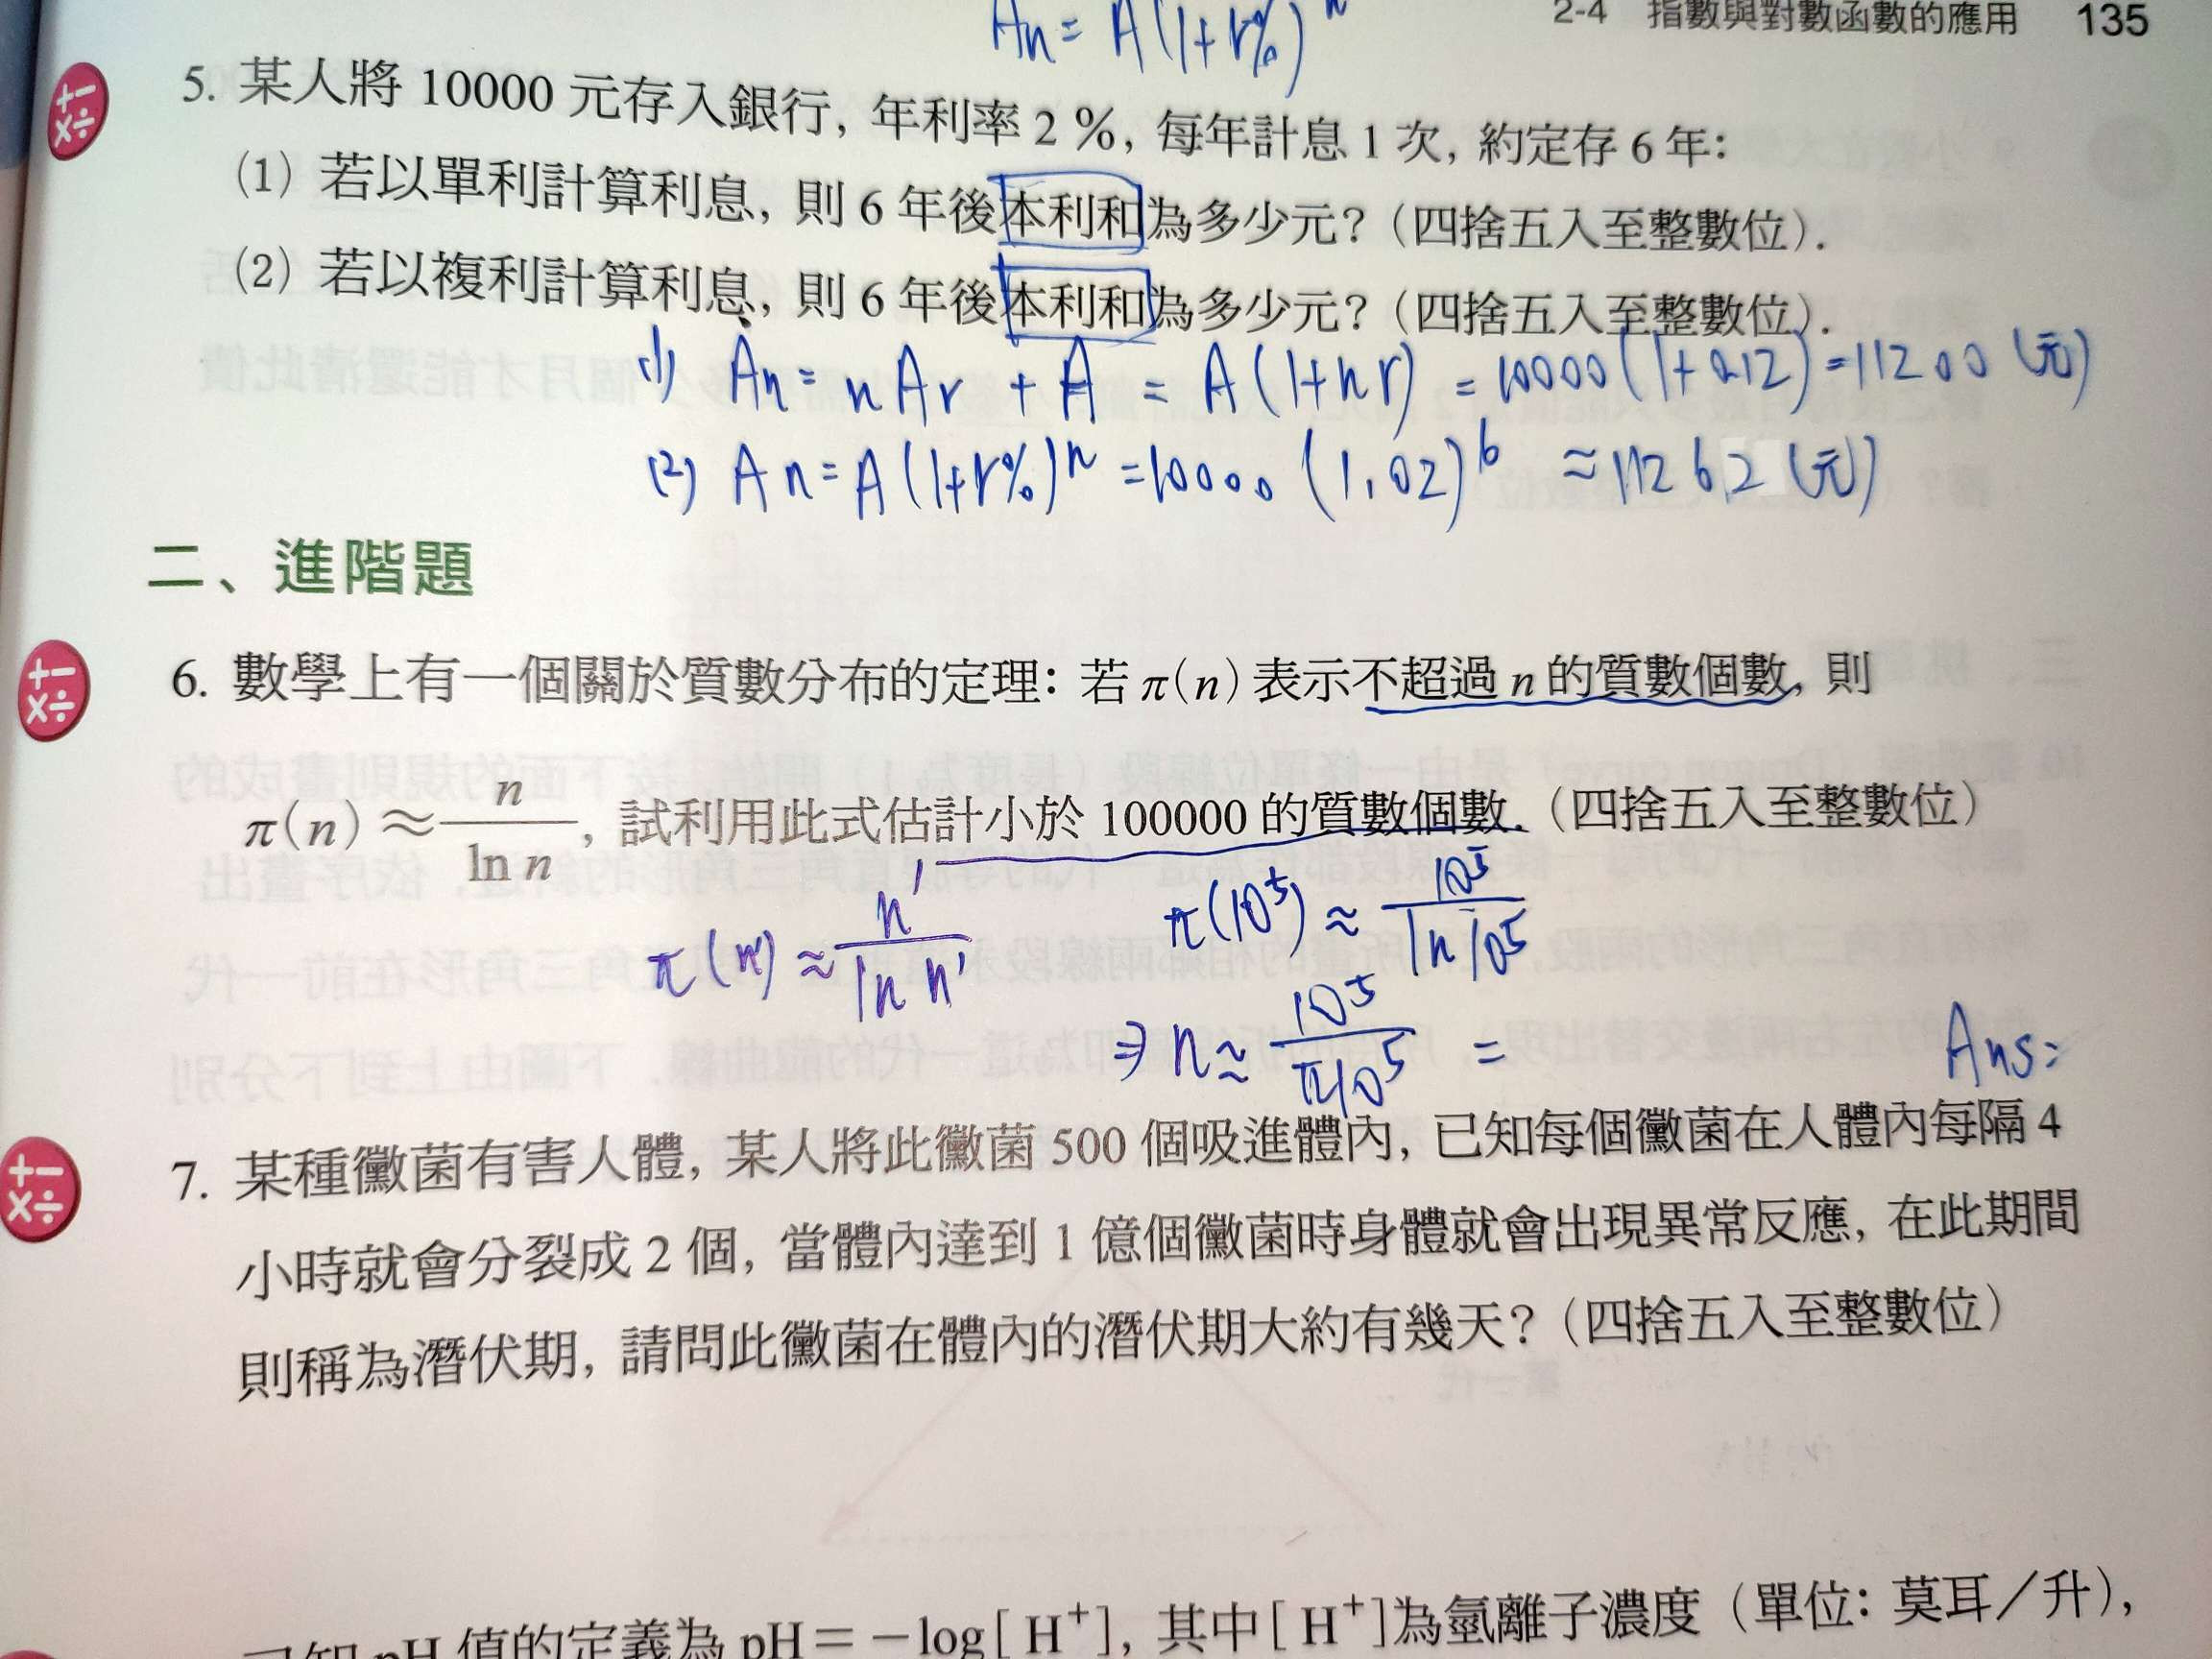 An = A(1+r%)^n
2-4 指數與對數函數的應用 135
5. 某人將 10000 元存入銀行, 年利率 2 %, 每年計息 1 次, 約定存 6 年:
(1) 若以單利計算利息, 則 6 年後本利和為多少元? (四捨五入至整數位).
(2) 若以複利計算利息, 則 6 年後本利和為多少元? (四捨五入至整數位).
(1) An = nAr + A = A(1+nr) = 10000(1+0.12) = 11200 (元)
(2) An = A(1+r%)^n = 10000 (1.02)^6 ≈ 11262 (元)
二、進階題
6. 數學上有一個關於質數分布的定理: 若 π(n) 表示不超過 n 的質數個數, 則
π(n) ≈ n / ln n, 試利用此式估計小於 100000 的質數個數. (四捨五入至整數位)
π(n') ≈ n' / ln n' π(10^5) ≈ 10^5 / ln 10^5
⇒ n ≈ 10^5 / π10^5 =
Ans:
7. 某種黴菌有害人體, 某人將此黴菌 500 個吸進體內, 已知每個黴菌在人體內每隔 4
小時就會分裂成 2 個, 當體內達到 1 億個黴菌時身體就會出現異常反應, 在此期間
則稱為潛伏期, 請問此黴菌在體內的潛伏期大約有幾天? (四捨五入至整數位)
已知 pH 值的定義為 pH = −log[ H⁺], 其中[ H⁺]為氫離子濃度 (單位: 莫耳/升),